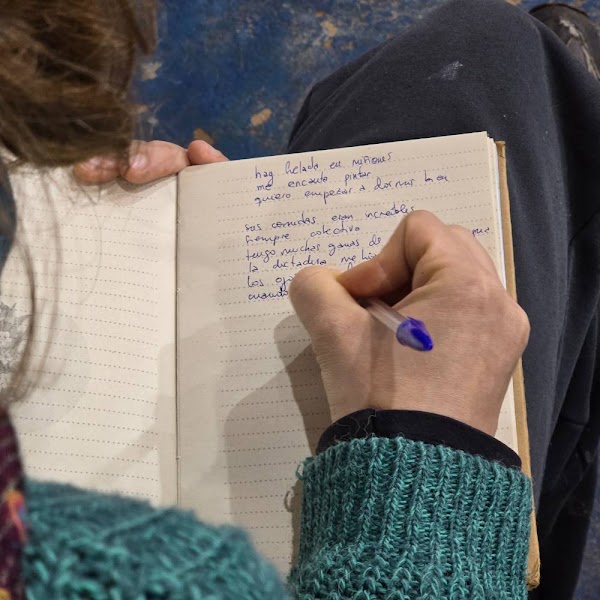 hay helado en
me encanta pintar
quiero empezar a dormir bien
sus comidas eran increíbles
siempre colectivo
tengo muchas ganas de que
la dictadura me
los
cuando